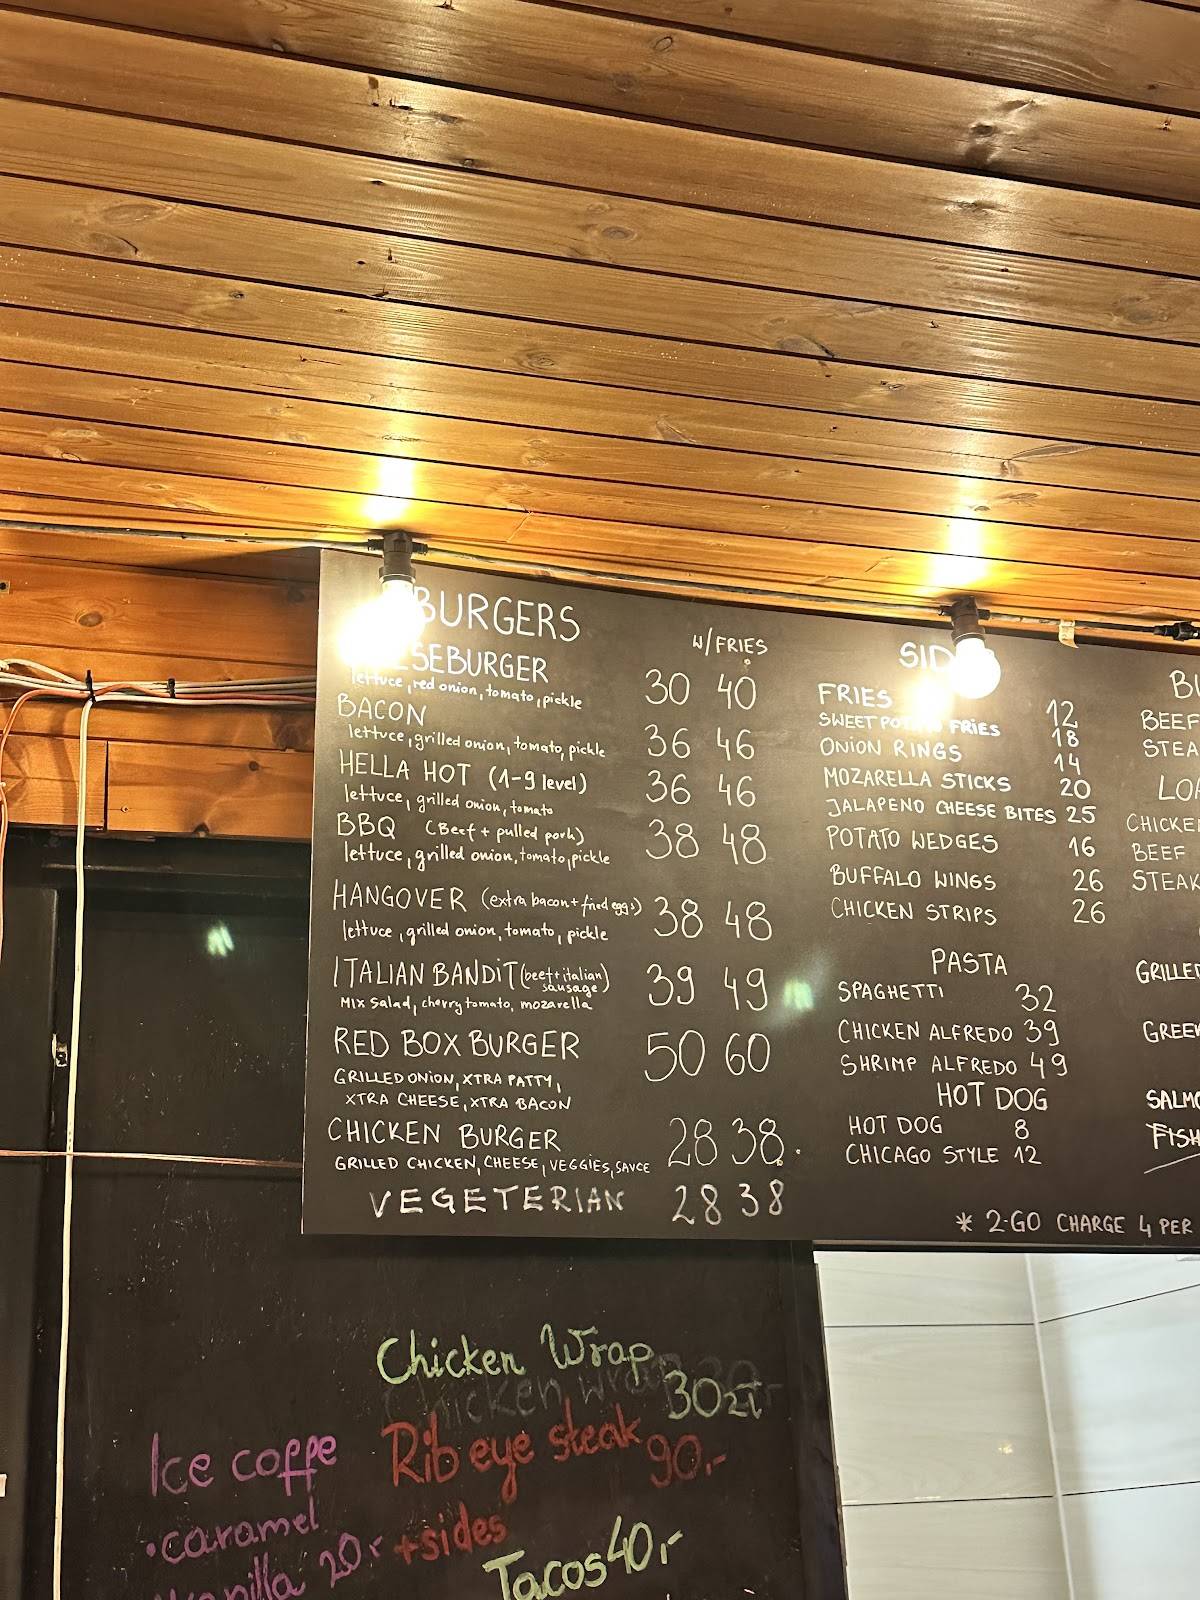 BURGERS
W/FRIES
lettuce, red onion, tomato, pickle
30 40
BACON
lettuce, grilled onion, tomato, pickle
36 46
HELLA HOT (1-9 level)
lettuce, grilled onion, tomato
36 46
BBQ (Beef + pulled pork)
lettuce, grilled onion, tomato, pickle
38 48
HANGOVER (extra bacon + fried eggs)
lettuce, grilled onion, tomato, pickle
38 48
ITALIAN BANDIT (beef + italian
sausage)
MIX salad, cherry tomato, mozarella
39 49
RED BOX BURGER
50 60
GRILLED ONION, XTRA PATTY,
XTRA CHEESE, XTRA BACON
CHICKEN BURGER
28 38.
GRILLED CHICKEN, CHEESE, VEGGIES, SAUCE
VEGETERIAN 28 38
FRIES 12
SWEET POTATO FRIES 18
ONION RINGS 14
MOZARELLA STICKS 20
JALAPENO CHEESE BITES 25
POTATO WEDGES 16
BUFFALO WINGS 26
CHICKEN STRIPS 26
PASTA
SPAGHETTI 32
CHICKEN ALFREDO 39
SHRIMP ALFREDO 49
HOT DOG
HOT DOG 8
CHICAGO STYLE 12
BEEF
CHICKEN
BEEF
STEAK
* 2-GO CHARGE 4 PER
Chicken Wrap
30zł
Rib eye steak
90,-
+sides
Ice coffe
•caramel
20,-
Tacos 40,-